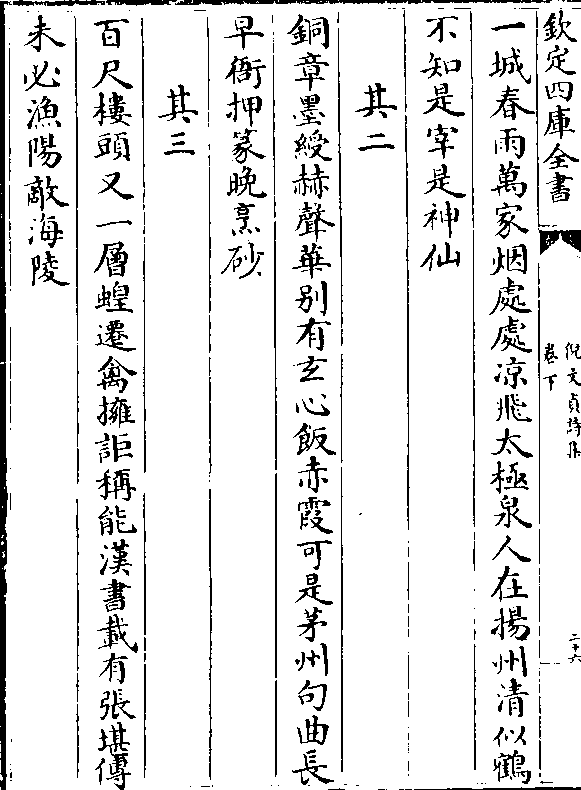 欽定四庫全書
倪文貞詩集
卷下
二十六
一城春雨萬家烟處處凉飛太極泉人在揚州清似鶴
不知是宰是神仙
其二
銅章墨綬赫聲華别有玄心飯赤霞可是茅州句曲長
早衙押篆晚烹砂
其三
百尺樓頭又一層蝗遷禽擁詎稱能漢書載有張堪傳
未必漁陽敵海陵